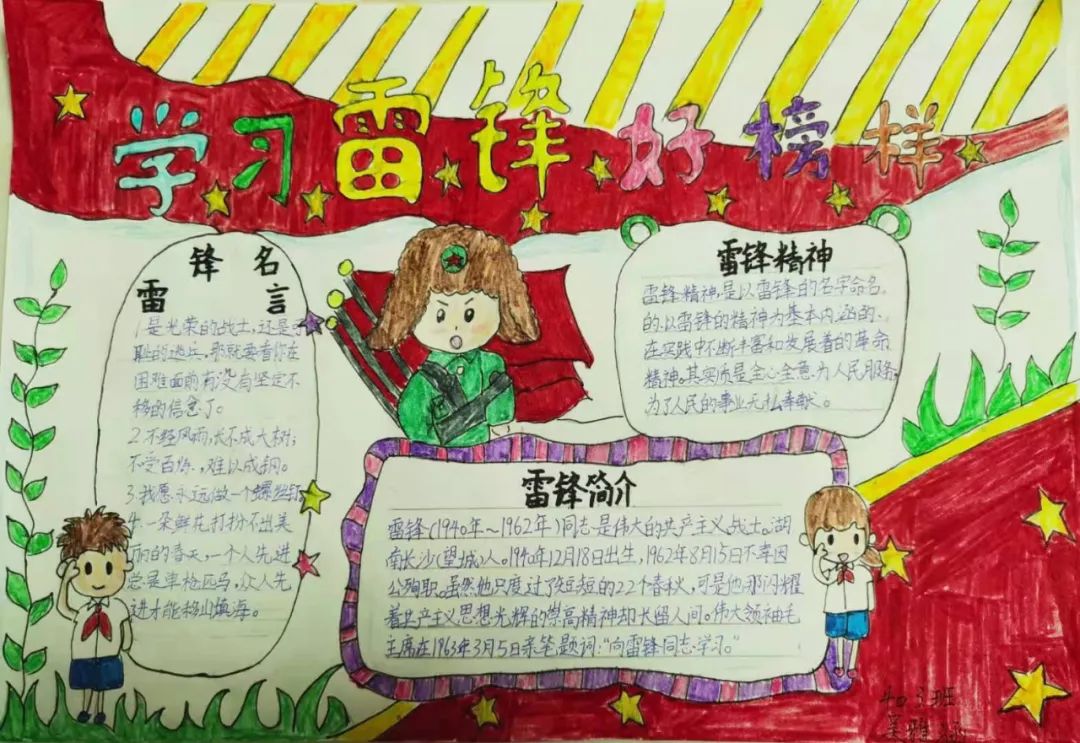 学习雷锋好榜样
雷锋名言
1.是光荣的战士,还是可
耻的逃兵,那就要看你在
困难面前有没有坚定不
移的信念了。
2.不经风雨,长不成大树;
不受百炼,难以成钢。
3.我愿永远做一个螺丝钉。
4.一朵鲜花打扮不出美
丽的春天,一个人先进
总是单枪匹马,众人先
进才能移山填海。
雷锋精神
雷锋精神,是以雷锋的名字命名
的、以雷锋的精神为基本内涵的、
在实践中不断丰富和发展着的革命
精神。其实质是全心全意为人民服务,
为了人民的事业无私奉献。
雷锋简介
雷锋(1940年~1962年)同志是伟大的共产主义战士。湖
南长沙(望城)人。1940年12月18日出生,1962年8月15日不幸因
公殉职。虽然他只度过了短短的22个春秋,可是他那闪耀
着共产主义思想光辉的崇高精神却长留人间。伟大领袖毛
主席在1963年3月5日亲笔题词:“向雷锋同志学习。”
班
吴雅涵